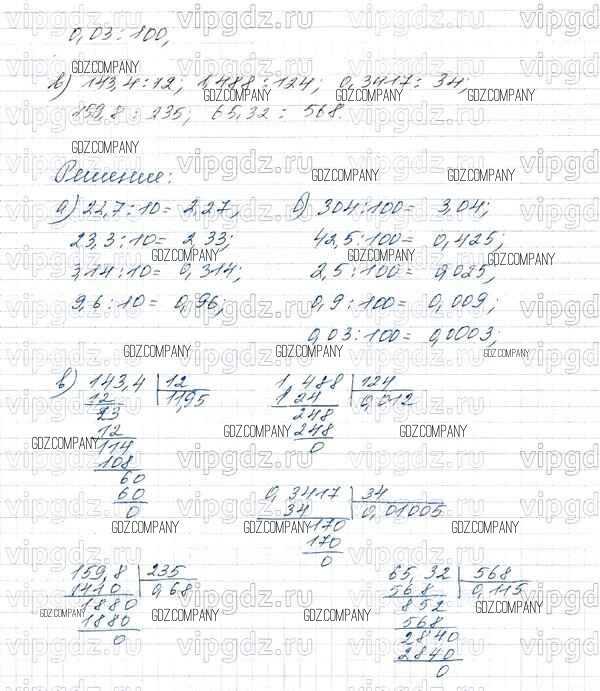 0,03 : 100,
в) 143,4 : 12; 1,488 : 124; 0,3417 : 34;
159,8 : 235; 65,32 : 568.
Решение:
а) 22,7 : 10 = 2,27; б) 304 : 100 = 3,04;
23,3 : 10 = 2,33; 42,5 : 100 = 0,425;
3,14 : 10 = 0,314; 2,5 : 100 = 0,025;
9,6 : 10 = 0,96; 0,9 : 100 = 0,009;
0,03 : 100 = 0,0003;
в) 143,4 12 1,488 124
12 11,95 124 0,012
23 248
12 248
114 0
108
60 0,3417 34
60 34 0,01005
0 170
170
0
159,8 235 65,32 568
1410 0,68 568 0,115
1880 852
1880 568
0 2840
2840
0
vipgdz.ru
GDZ.COMPANY